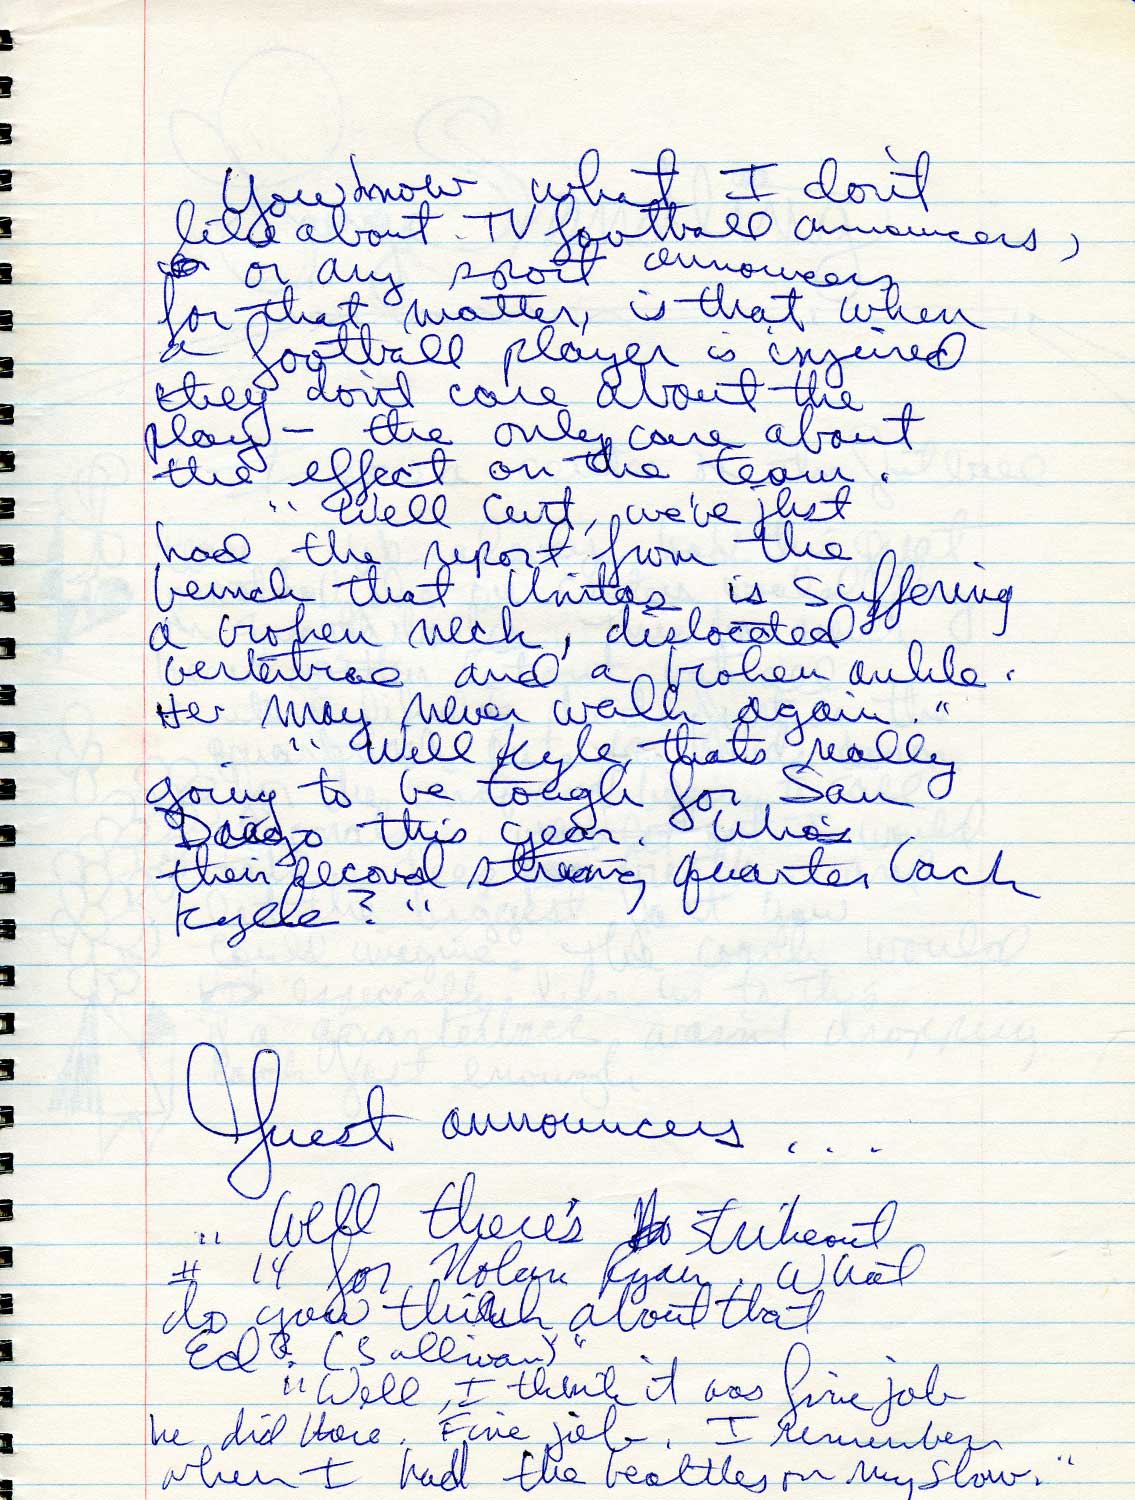 You know what I don't
like about TV football announcers,
or any sport announcers
for that matter, is that when
a football player is injured
they don't care about the
play – the only care about
the effect on the team.
"Well Curt, we've just
had the report from the
bench that Unitas is suffering
a broken neck, dislocated
vertebrae and a broken ankle.
Her may never walk again."
"Well Kyle, thats really
going to be tough for San
Diego this year. Who's
their second string quarter back
Kyle?"
Guest announcers...
"Well there's strikeout
# 14 for Nolan Ryan. What
do you think about that
Ed? (Sullivan)"
"Well, I think it was fine job
he did there. Fine job. I remember
when I had the beattles on my show."